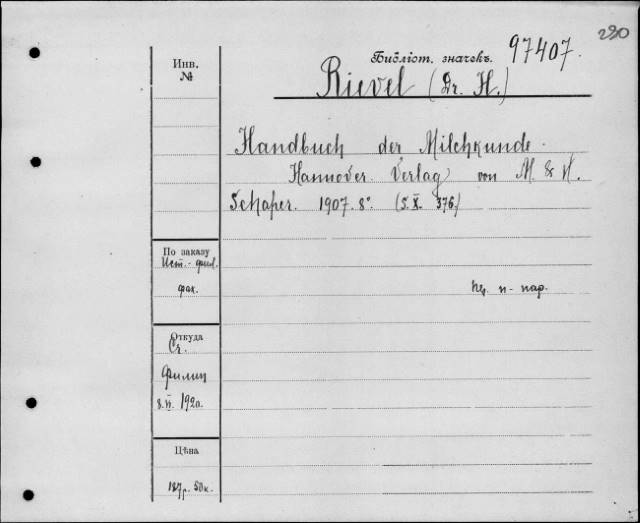 290
Инв.
№
Библіот. значекъ. 97407.
Rievel (Dr. H.)
Handbuch der Milchkunde.
Hannover. Verlag von M. & H.
Schaper. 1907. 8°. (S. X. 376.)
По заказу
Ист.-фил.
фак.
пер. п-пар.
Откуда
Ст.
Филип
8.VI.1920.
Цѣна
187р. 50к.